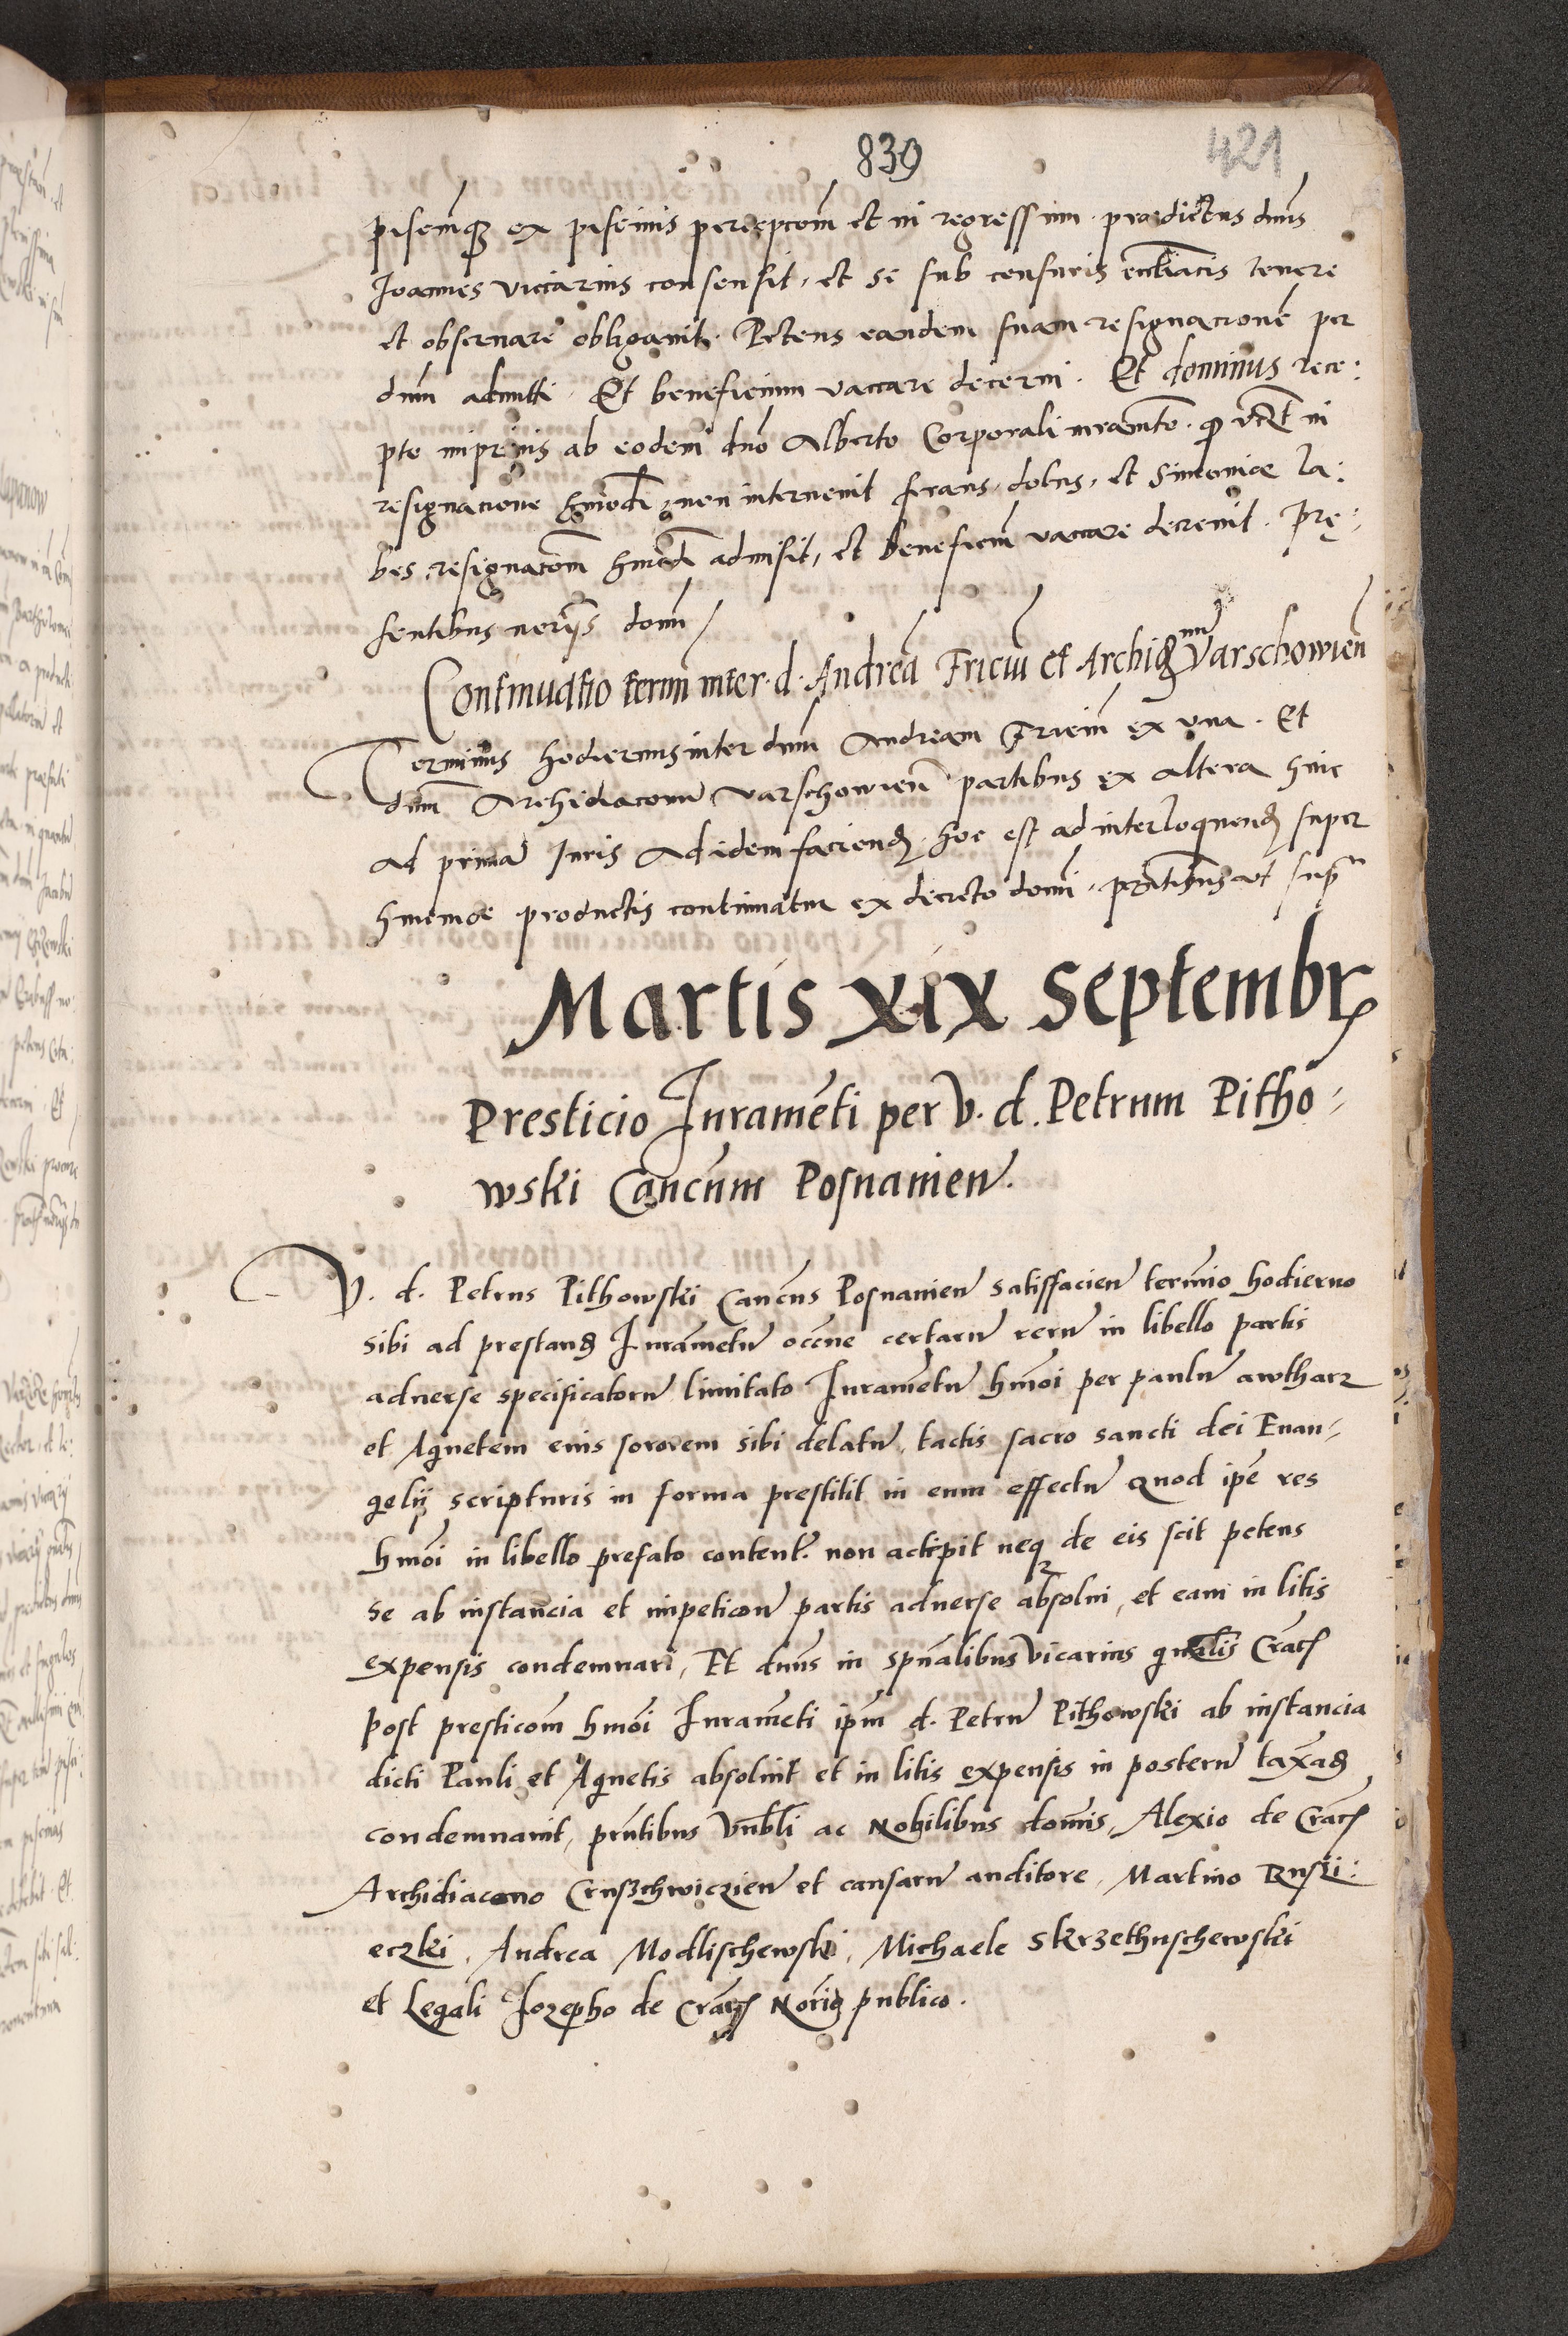 839 421
pisemq̃ ex pisemis percepcom̃ et in regressum. praedictus dñus
Joannes viccarius consensit, et se sub censuris eccliãcis tenere
et obseruare obligauit. Petens eandem suam resignacionẽ per
dñm admitti. Et beneficium vaccare decerni. Et dominus rece:
pto inprimis ab eodem dño Alberto Corporali iuramẽto. q̃ in
resignacione hmõdi, non interuenit fraus, dolus, et Simoniae la:
bes, resignacõm hmõdi admisit, et beneficiũm vaccare decreuit. Prę:
sentibus nerijs domĩ
Continuatio termĩ inter. d. Andreã Fricũ et Archidnũ Varschowieñ
Terminus hodiernus inter dñm Andream Friciũ ex vna. Et
dñm Archidiaconũ varschowieñ partibus ex altera hinc
ad primã Juris Ad idem faciend̃. hoc est ad interloquend̃ super
hincinde productis continuatur ex decreto domĩ. pr̃ntibus vt supr̃a
Martis xix Septembr̃
Presticio Juramẽti per V. d. Petrum Pitho-
wski Canc̃um Posnanień.
V. d. Petrus Pithowski Canc̃us Posnanień satisfacień termĩo hodierno
sibi ad prestand̃ Juramẽtũ occ̃ne certarũ rerũ in libello partis
aduerse specificatorũ limitato Juramẽtũ hmõi per paulũ awtharz
et Agnetem eius sororem sibi delatũ, tactis sacro sancti dei Euan-
gelij scripturis in forma prestitit in eum effectũ quod ipẽ res
hmõi in libello prefato content̃. non accepit neq̃ de eis scit petens
se ab instancia et impeticoñ partis aduerse absolui, et eam in litis
expensis condemnari, Et dñus in spũalibus Vicarius gnãlis Crac̃
post presticom̃ hmõi Juramẽti ipm̃ d. Petrũ Pithowski ab instancia
dicti Pauli et Agnetis absoluit et in litis expensis in posterũ taxãd̃
condemnauit, pr̃ntibus Vnbl̃i ac Nobilibus domĩs, Alexio de Crac̃
Archidiacono Crusschwiczień et causarũ auditore, Martino Ruski:
eczki, Andrea Modlischewski, Michaele Skrzethuschewski
et Legali Jozepho de Crac̃ Norĩo publico.